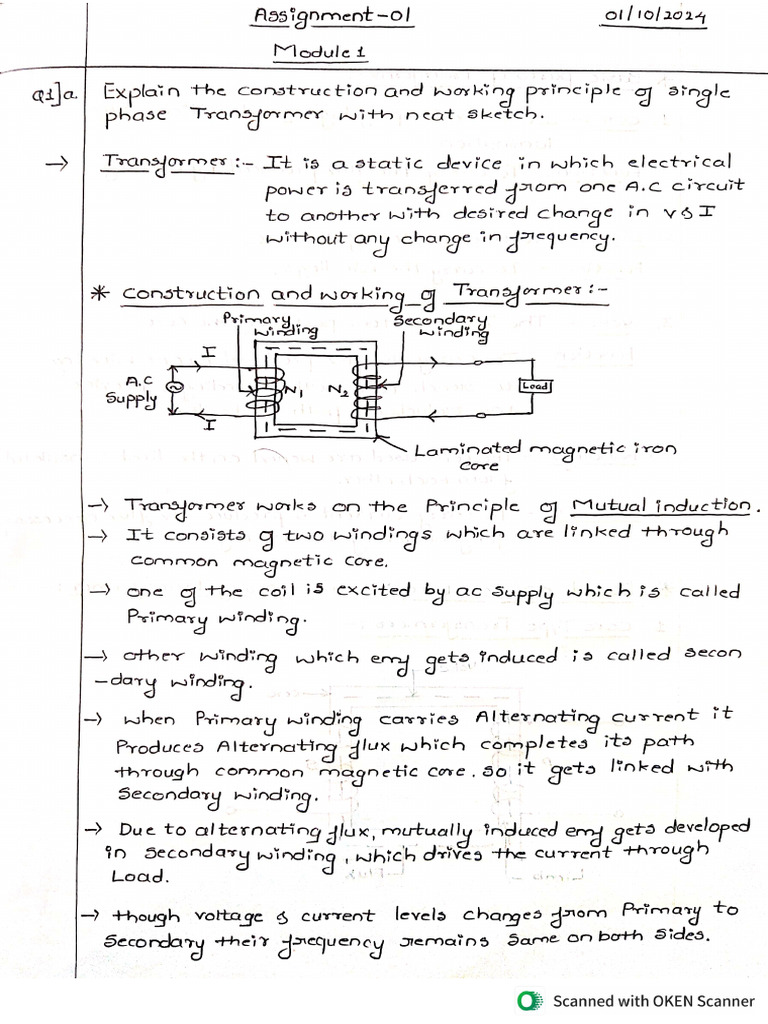 Assignment-01
01/10/2024
Module 1
Q1]a. Explain the construction and working principle of single
phase Transformer with neat sketch.
→ Transformer :- It is a static device in which electrical
power is transferred from one A.C circuit
to another with desired change in V & I
without any change in frequency.
* Construction and working of Transformer :-
Primary winding
Secondary winding
I
A.C Supply
N1
N2
Load
I
Laminated magnetic iron
core
→ Transformer works on the Principle of Mutual induction.
→ It consists of two windings which are linked through
common magnetic core.
→ one of the coil is excited by ac supply which is called
Primary winding.
→ other winding which emf gets induced is called secon
-dary winding.
→ when Primary winding carries Alternating current it
Produces Alternating flux which completes its path
through common magnetic core. so it gets linked with
Secondary winding.
→ Due to alternating flux, mutually induced emf gets developed
in secondary winding, which drives the current through
Load.
→ though voltage & current levels changes from Primary to
Secondary their frequency remains same on both sides.
Scanned with OKEN Scanner